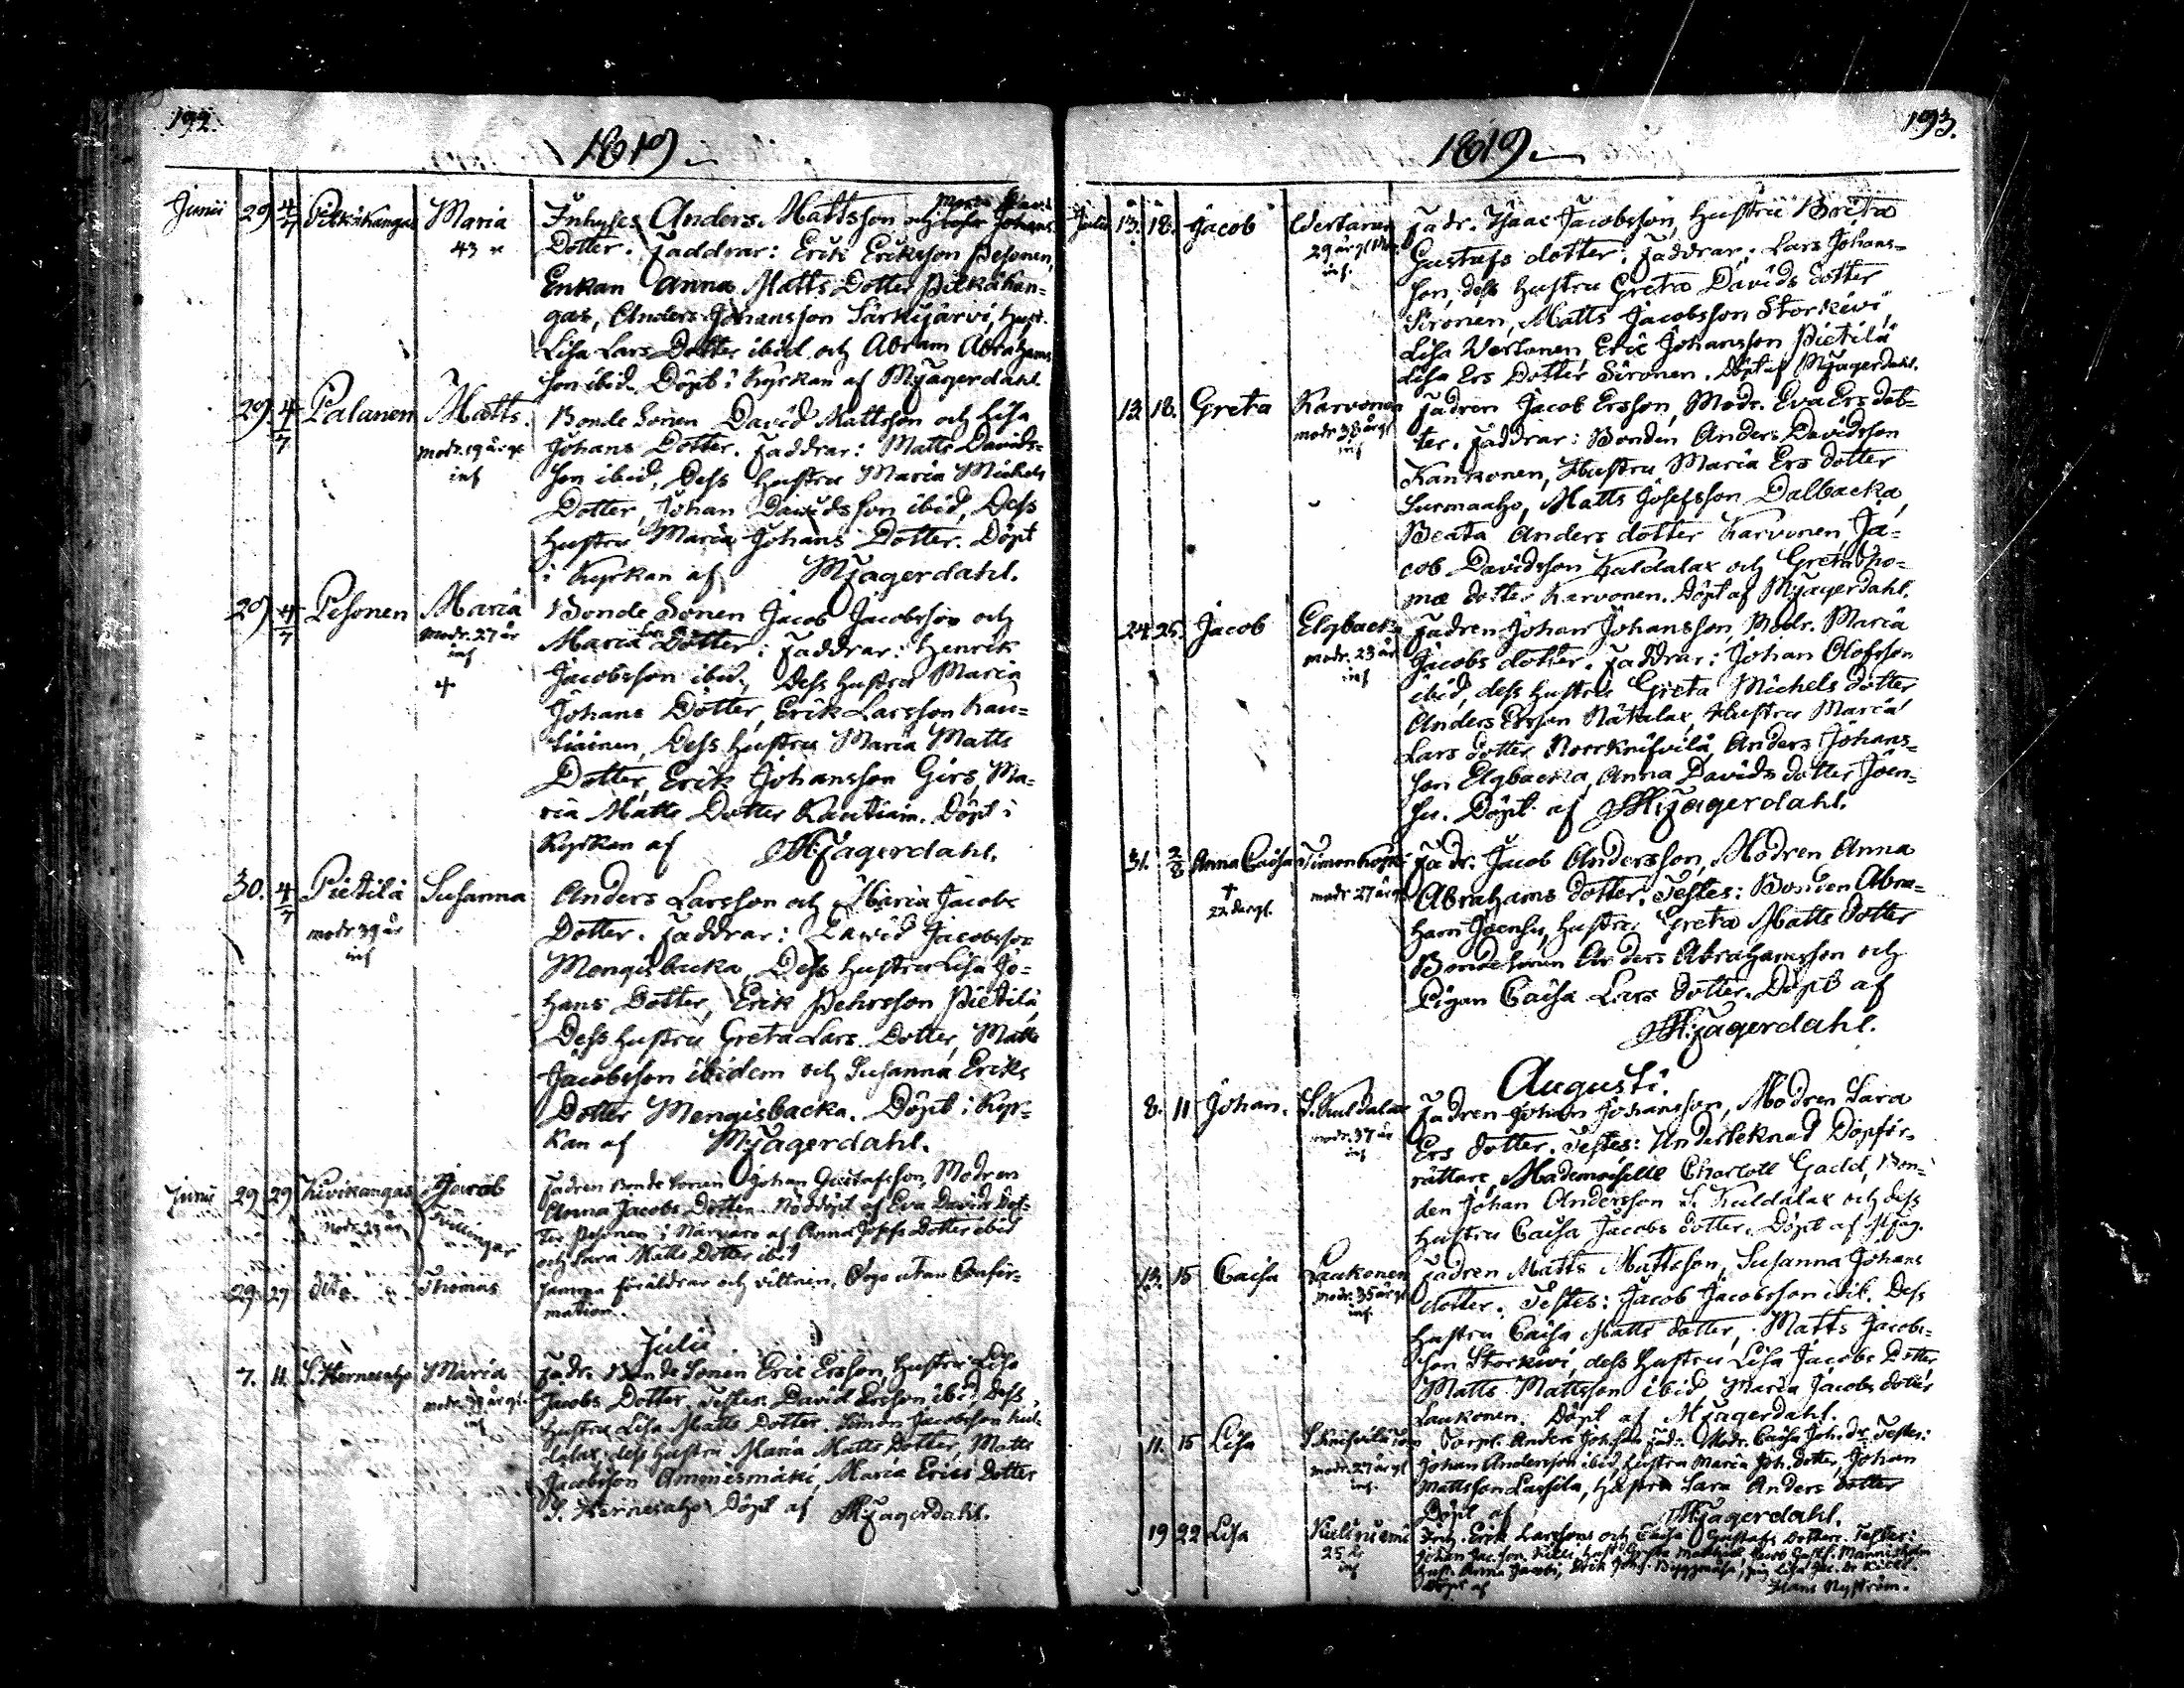 192.
1819.
Junii 29 4/7 Pitkäkangas Maria 43 Inhyses Anders Mattsson och Johans
Dotter. Faddrar: Erik Eriksson Pesonen,
Enkan Anna Matts Dotter Pitkäkan=
gas, Anders Johansson Särkijärvi, Hust.
Lisa Lars Dotter ibid. och Abram Abrahams
son ibid. Döpt i Kyrkan af M Fagerdahl
29. 4/7 Palanen Matts. Bonde Sonen David Mattsson och Lisa
modr. 19 år gl. inf Johans Dotter. Faddrar: Matts Davids=
son ibid, Dess Hustru Maria Michels
Dotter, Johan Davidsson ibid, Dess
Hustru Maria Johans Dotter. Döpt
i Kyrkan af M Fagerdahl.
29 4/7 Pesonen Maria Bonde Sonen Jacob Jacobsson och
modr. 27 år inf Maria Dotter; Faddrar: Henrik
Jacobsson ibid, Dess Hustru Maria
Johans Dotter, Erik Larsson Kau=
tiainen, Dess Hustru Maria Matts
Dotter, Erik Johansson Girs, Ma=
ria Matts Dotter Kautiain. Döpt i
Kyrkan af M Fagerdahl.
30. 4/7 Pietilä Susanna Anders Larsson och Maria Jacobs
modr 39 år inf Dotter. Faddrar: David Jacobsson
Mengisbacka, Dess Hustru Lisa Jo=
hans Dotter, Erik Pehrsson Pietilä,
Dess Hustru Greta Lars Dotter, Matts
Jacobsson ibidem och Susanna Eriks
Dotter Mengisbacka. Döpt i Kyr=
kan af M Fagerdahl.
Junii 29 29 Kivikangas Jacob Fadren Bonde Sonen Johan Gustafsson, Modren
Modr. 23 år Tvillingar Anna Jacobs Dotter. Nöddöpt af Eva Davids Dot=
ter Pesonen i Närvaro af Anna Josefs Dotter ibid
och Sara Matts Dotter ibid
29. 29 dito Thomas Samma föräldrar och vittnen. Dogo utan Confir=
mation.
Julii
7. 11. S. Hernesaho Maria Fadr. Bonde Sonen Eric Ersson, Hustru Lisa
inf Jacobs Dotter. Testes: David Ersson ibid, Dess
Hustru Lisa Matts Dotter. Simon Jacobsson Kul=
dalax, dess Hustru Maria Matts Dotter, Matts
Jacobsson Ammesmäki, Maria Erics Dotter
S. Hernesaho Döpt af M Fagerdahl.
193.
1819.
Julii 13. 18. Jacob Wertanen Fadr. Isaac Jacobsson, Hustru Brita
29 år gl. Mod. inf. Gustafs dotter; Faddrar: Lars Johans=
son, dess Hustru Greta Davids dotter
Sironen, Matts Jacobsson Storkivi,
Lisa Wertanen, Eric Johansson Pietilä
Lisa Ers Dotter Sironen. Döpt af M Fagerdahl.
13. 18. Greta Karvonen Fadren Jacob Ersson, Modr. Eva Ers dot=
modr 38 år gl inf ter. Faddrar: Bonden Anders Davidsson
Kankonen, Hustru Maria Ers dotter
Surmaaho, Matts Josefsson Dalbacka,
Beata Anders dotter Karvonen Ja=
cob Davidsson Kaldalax och Greta Tho=
mæ dotter Karvonen. Döpt af M Fagerdahl.
24. 25. Jacob Elgbacka Fadren Johan Johansson, Modr. Maria
modr. 23 år inf Jacobs dotter. Faddrar: Johan Olofsson
ibid, dess Hustru Greta Michels dotter
Anders Ersson Nätalax, Hustru Maria
Lars dotter Norrknifvilä, Anders Johans=
son Elgbacka, Anna Davids dotter Joen=
su. Döpt af M Fagerdahl.
31. 2/8 Anna Caisa Timonkoski Fadr. Jacob Andersson, Modren Anna
† 22 dar gl. modr 27 år gl Abrahams dotter. Testes: Bonden Abra=
ham Joensu, Hustru Greta Matts dotter
Bondesonen Anders Abrahamsson och
Pigan Caisa Lars dotter. Döpt af
M Fagerdahl.
Augusti.
8. 11 Johan. S. Kuldalax Fadren Johan Johansson, Modren Sara
modr. 37 år inf Ers dotter. Testes: Underteknad Döpför=
rättare, Mademoiselle Charlott Gadd, Bon=
den Johan Andersson S. Kuldalax och dess
Hustru Caisa Jacobs dotter. Döpt af M Fag.
13. 15 Caisa Laukonen Fadren Matts Mattsson, Susanna Johans
modr. 35 år gl inf. dotter. Testes: Jacob Jacobsson ibid. Dess
Hustru Caisa Matts dotter, Matts Jacobs=
son Storkivi, dess Hustru Lisa Jacobs Dotter
Matts Mattsson ibid Maria Jacobs dotter
Laukonen. Döpt af M Fagerdahl.
11. 15 Lisa S Knifvilä Torp. Anders Johsson Fadr. Modr. Caisa Joh. dr. Testes:
modr. 27 år gl inf. Johan Andersson ibid, Hustru Maria Joh. dotter, Johan
Mattsson Lassila, Hustru Sara Anders dotter
Döpt af M Fagerdahl.
19 22 Lisa Kieliniemi Inh. Erik Larsson och Caisa Gustafs Dotter. Testes:
25 år inf
Döpt af Hans Nyström.